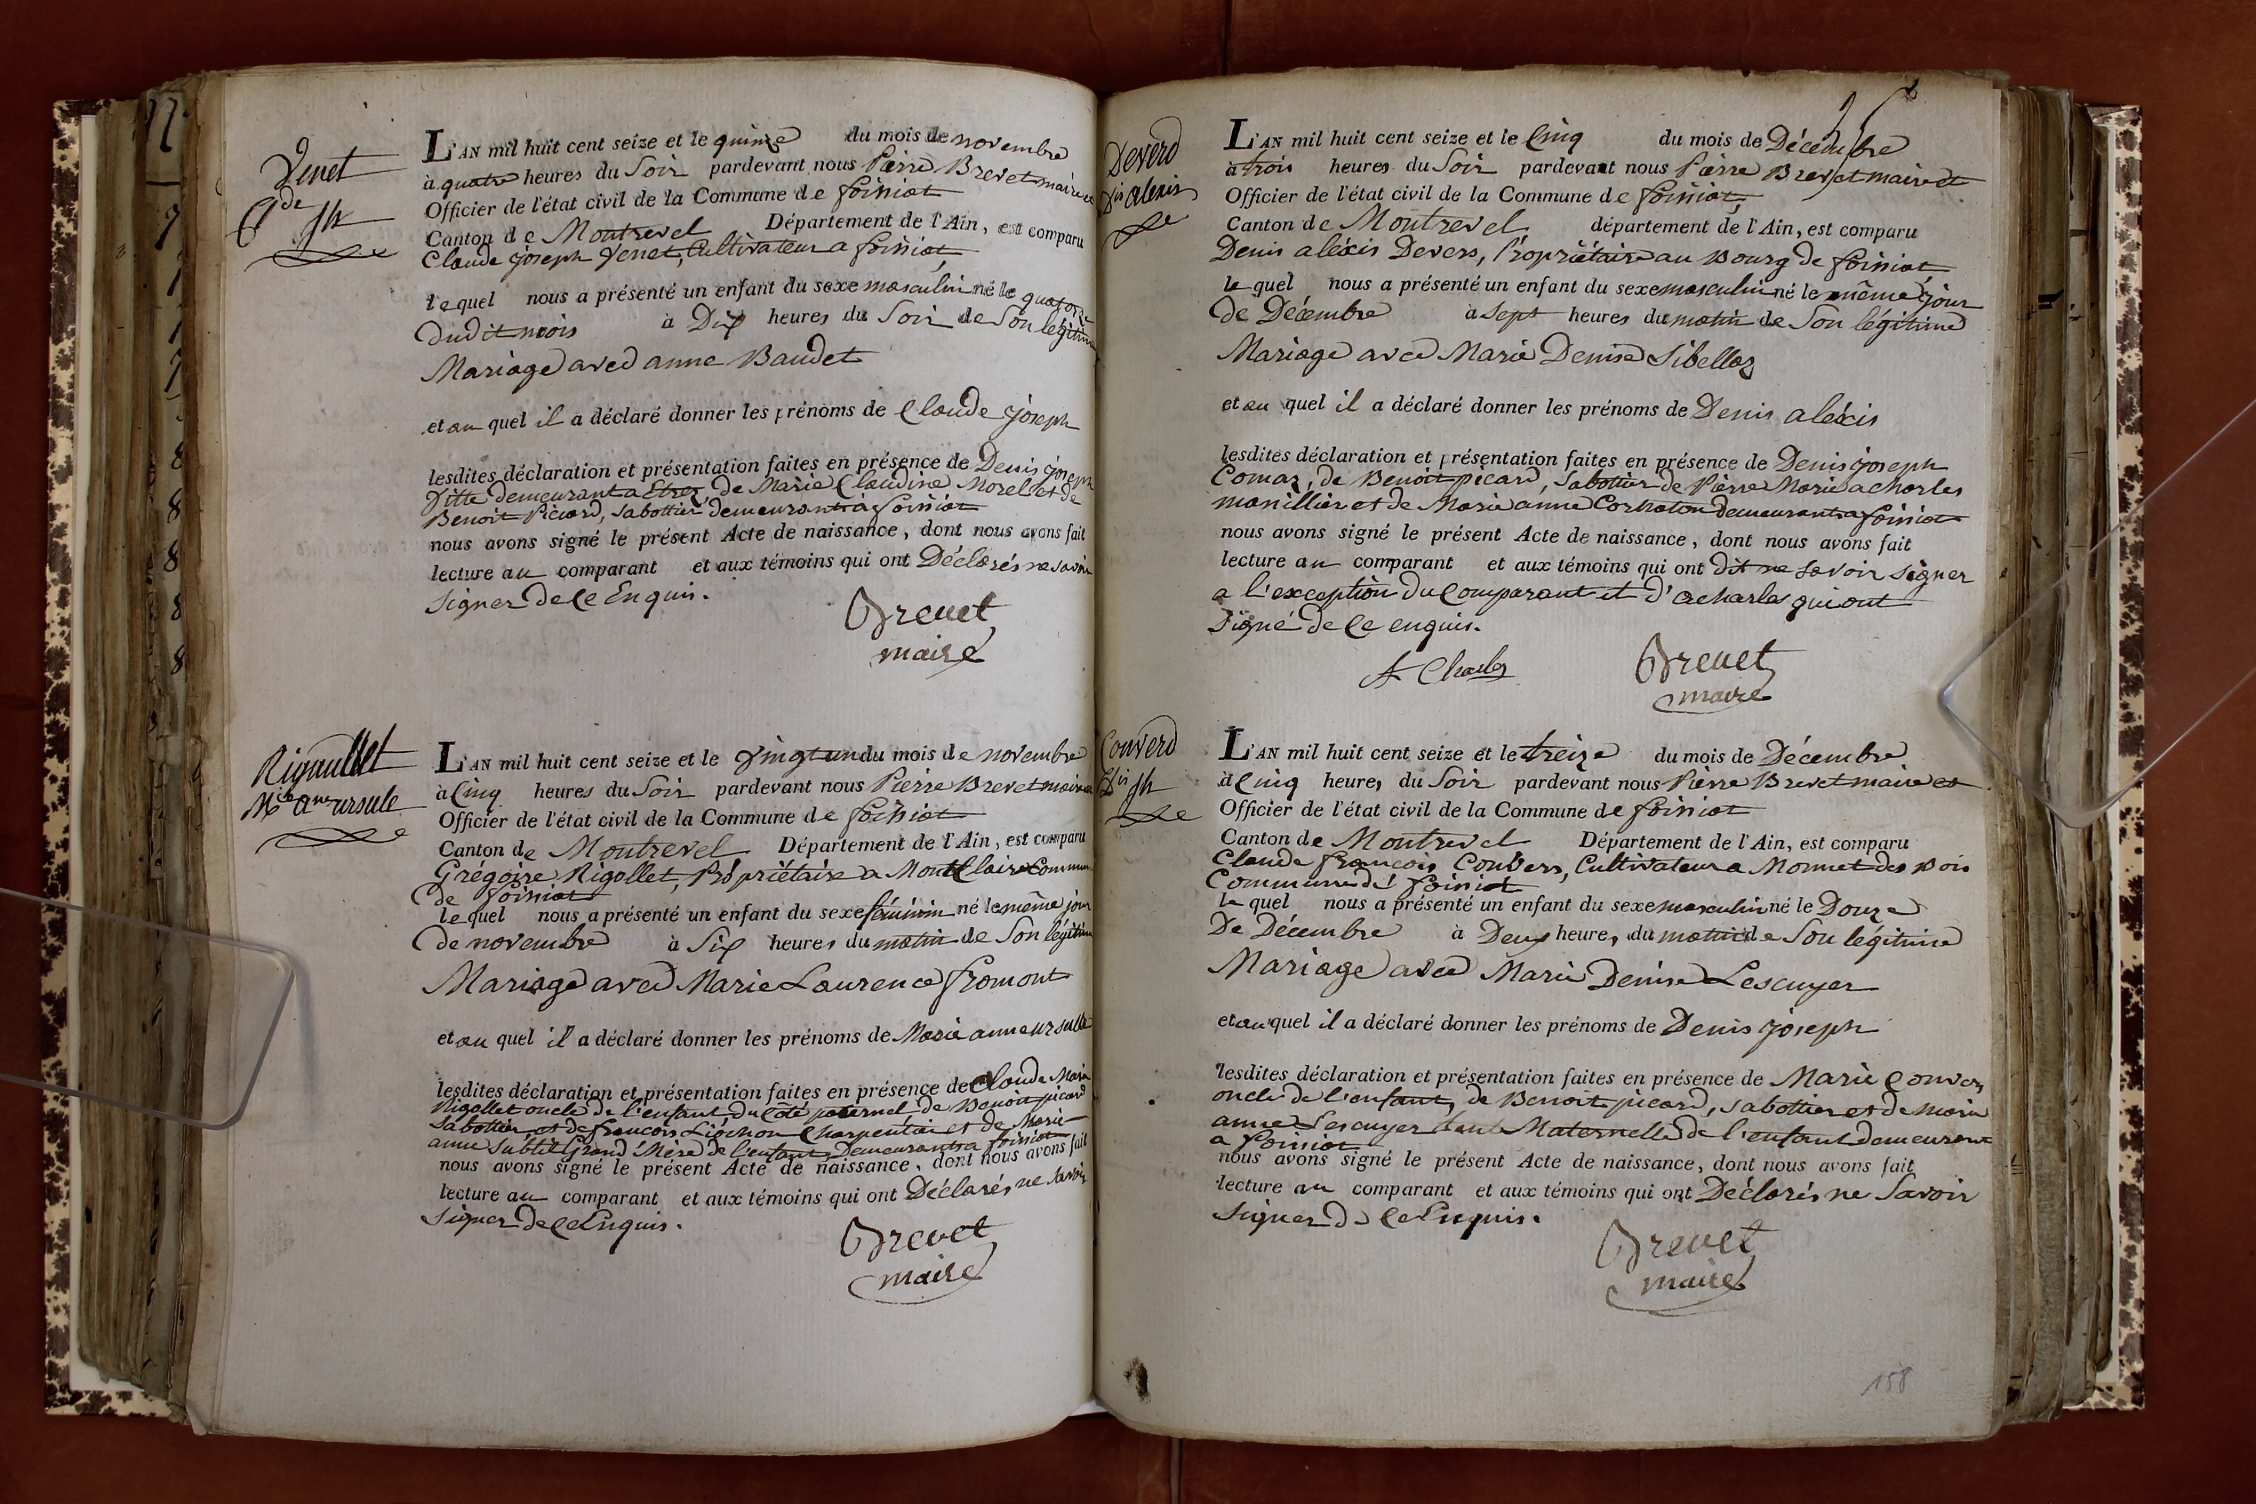 Venet
Cde jh
L'AN mil huit cent seize et le quinze du mois de novembre
à quatre heures du Soir pardevant nous Pierre Brevet maire et
Officier de l'état civil de la Commune de foissiat
Canton de Montrevel Département de l'Ain, est comparu
Claude joseph Venet, Cultivateur a foissiat
lequel nous a présenté un enfant du sexe masculin né le quatorze
dudit mois à Dix heures du Soir de Son légitime
Mariage avec anne Baudet
et au quel il a déclaré donner les prénoms de Claude joseph
lesdites déclaration et présentation faites en présence de Denis joseph
Pitte demeurant a Etrez, de Marie Claudine Morel et de
Benoit Piccard, Sabottier demeurant a foissiat
nous avons signé le présent Acte de naissance, dont nous avons fait
lecture au comparant et aux témoins qui ont Déclarés ne savoir
Signer de Ce Enquis.
Brevet
maire
Rigaullet
Mie ane ursule
L'AN mil huit cent seize et le vingt un du mois de novembre
à Cinq heures du Soir pardevant nous Pierre Brevet maire et
Officier de l'état civil de la Commune de foissiat
Canton de Montrevel Département de l'Ain, est comparu
Grégoire Rigollet, Propriétaire a MontClaire Commune
de foissiat
lequel nous a présenté un enfant du sexe féminin né le même jour
de novembre à Six heures du matin de Son légitime
Mariage avec Marie Laurence fromont
et au quel il a déclaré donner les prénoms de Marie anne ursulle
lesdites déclaration et présentation faites en présence de Claude Marie
Rigollet oncle de l'enfant du Côté paternel de Benoit picard
Sabottier et de françois Liochon Charpentier et de Marie
anne Subtil Grand Mère de l'enfant, Demeurant a foissiat
nous avons signé le présent Acte de naissance, dont nous avons fait
lecture au comparant et aux témoins qui ont Déclarés ne Savoir
Signer de Ce Enquis.
Brevet
maire
Deverd
Dis alexis
L'AN mil huit cent seize et le Cinq du mois de Décembre
à trois heures du Soir pardevant nous Pierre Brevet maire et
Officier de l'état civil de la Commune de foissiat,
Canton de Montrevel département de l'Ain, est comparu
Denis aléxis Devers, Propriétaire au Bourg de foissiat
lequel nous a présenté un enfant du sexe masculin né le même jour
de Décembre à Sept heures du matin de Son légitime
Mariage avec Marie Denise Sibellas
et au quel il a déclaré donner les prénoms de Denis aléxis
lesdites déclaration et présentation faites en présence de Denis joseph
Comaz, de Benoit picard, Sabottier de Pierre Marie acharles
marillier et de Marie anne demeurant a foissiat
nous avons signé le présent Acte de naissance, dont nous avons fait
lecture au comparant et aux témoins qui ont dit ne savoir signer
a l'exception du Comparant et d'acharles qui ont
Signé de Ce enquis.
A Charles
Brevet
maire
Converd
Dis jh
L'AN mil huit cent seize et le treize du mois de Décembre
à Cinq heures du Soir pardevant nous Pierre Brevet maire et
Officier de l'état civil de la Commune de foissiat
Canton de Montrevel Département de l'Ain, est comparu
Claude françois Convers, Cultivateur a Monnet des Bois
Commune de foissiat
lequel nous a présenté un enfant du sexe masculin né le Douze
De Décembre à Deux heures du matin de Son légitime
Mariage avec Marie Denise Lescuyer
et au quel il a déclaré donner les prénoms de Denis joseph
lesdites déclaration et présentation faites en présence de Marie Convers
oncle de l'enfant, de Benoit picard, Sabottier et de Marie
anne Lescuyer tante Maternelle de l'enfant demeurant
a foissiat
nous avons signé le présent Acte de naissance, dont nous avons fait
lecture au comparant et aux témoins qui ont Déclarés ne Savoir
Signer de Ce Enquis.
Brevet
maire
158